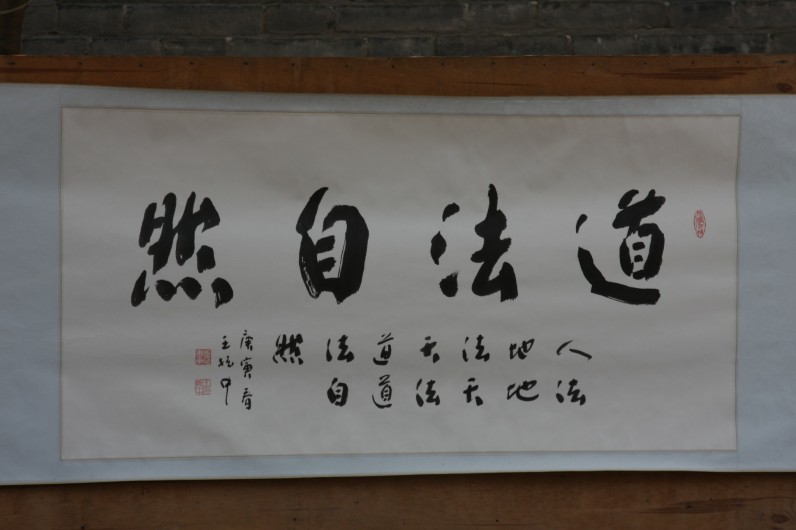 道法自然
人法
地地
法天
天法
道道
法自
然
庚寅春